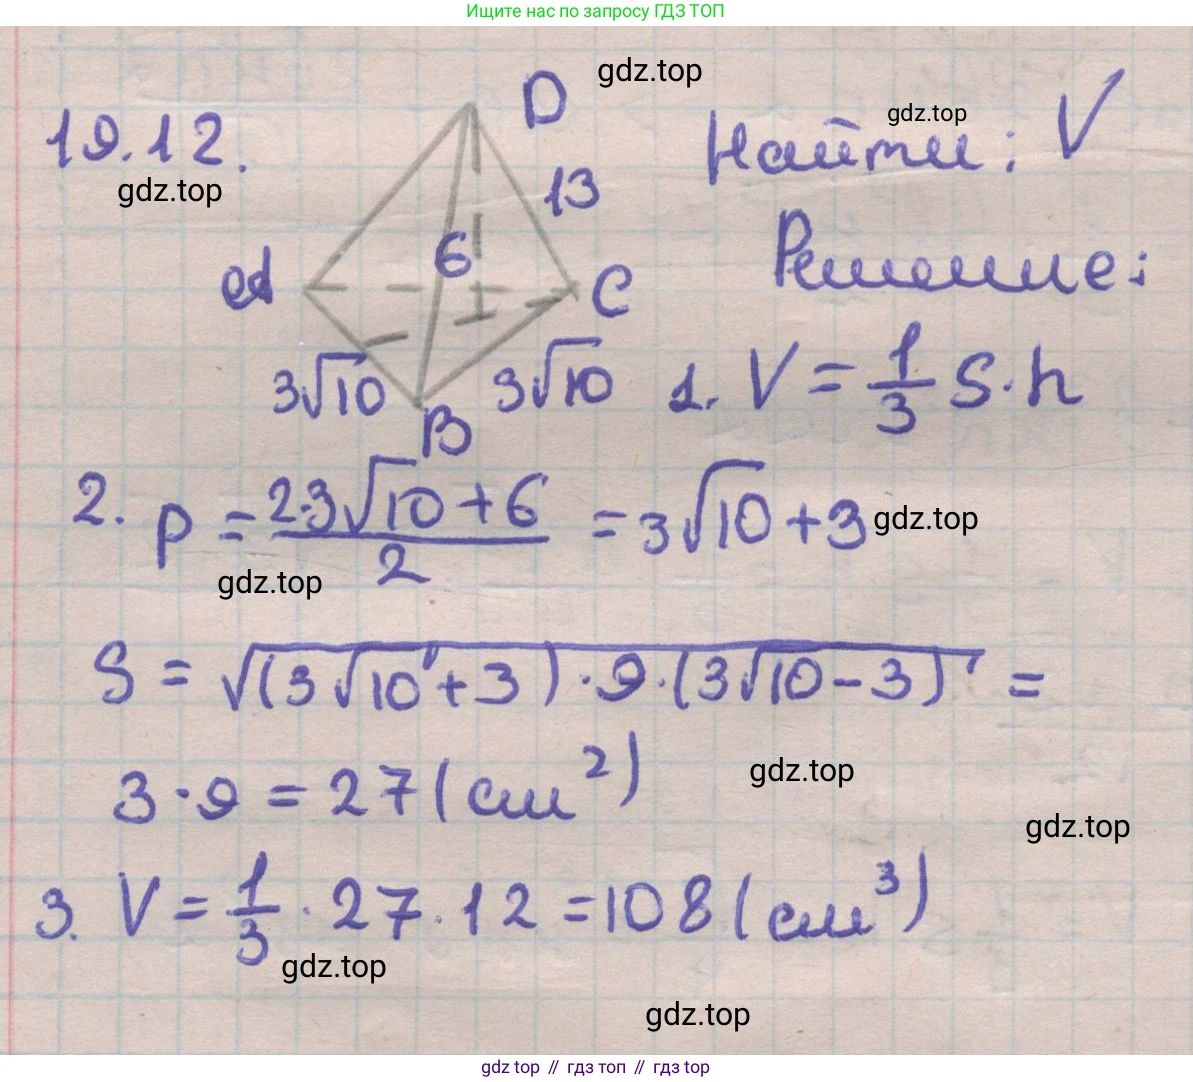 Ищите нас по запросу ГДЗ ТОП
gdz.top
19.12.
D
Найти: V
gdz.top
gdz.top
13
6
A
C
Решение:
3√10
3√10
B
1. V = 1/3 S · h
2. p = (2·3√10 + 6)/2 = 3√10 + 3
gdz.top
gdz.top
S = √((3√10 + 3) · 9 · (3√10 - 3)) =
3 · 9 = 27 (см²)
gdz.top
gdz.top
3. V = 1/3 · 27 · 12 = 108 (см³)
gdz.top
gdz.top
gdz top // гдз топ // гдз top